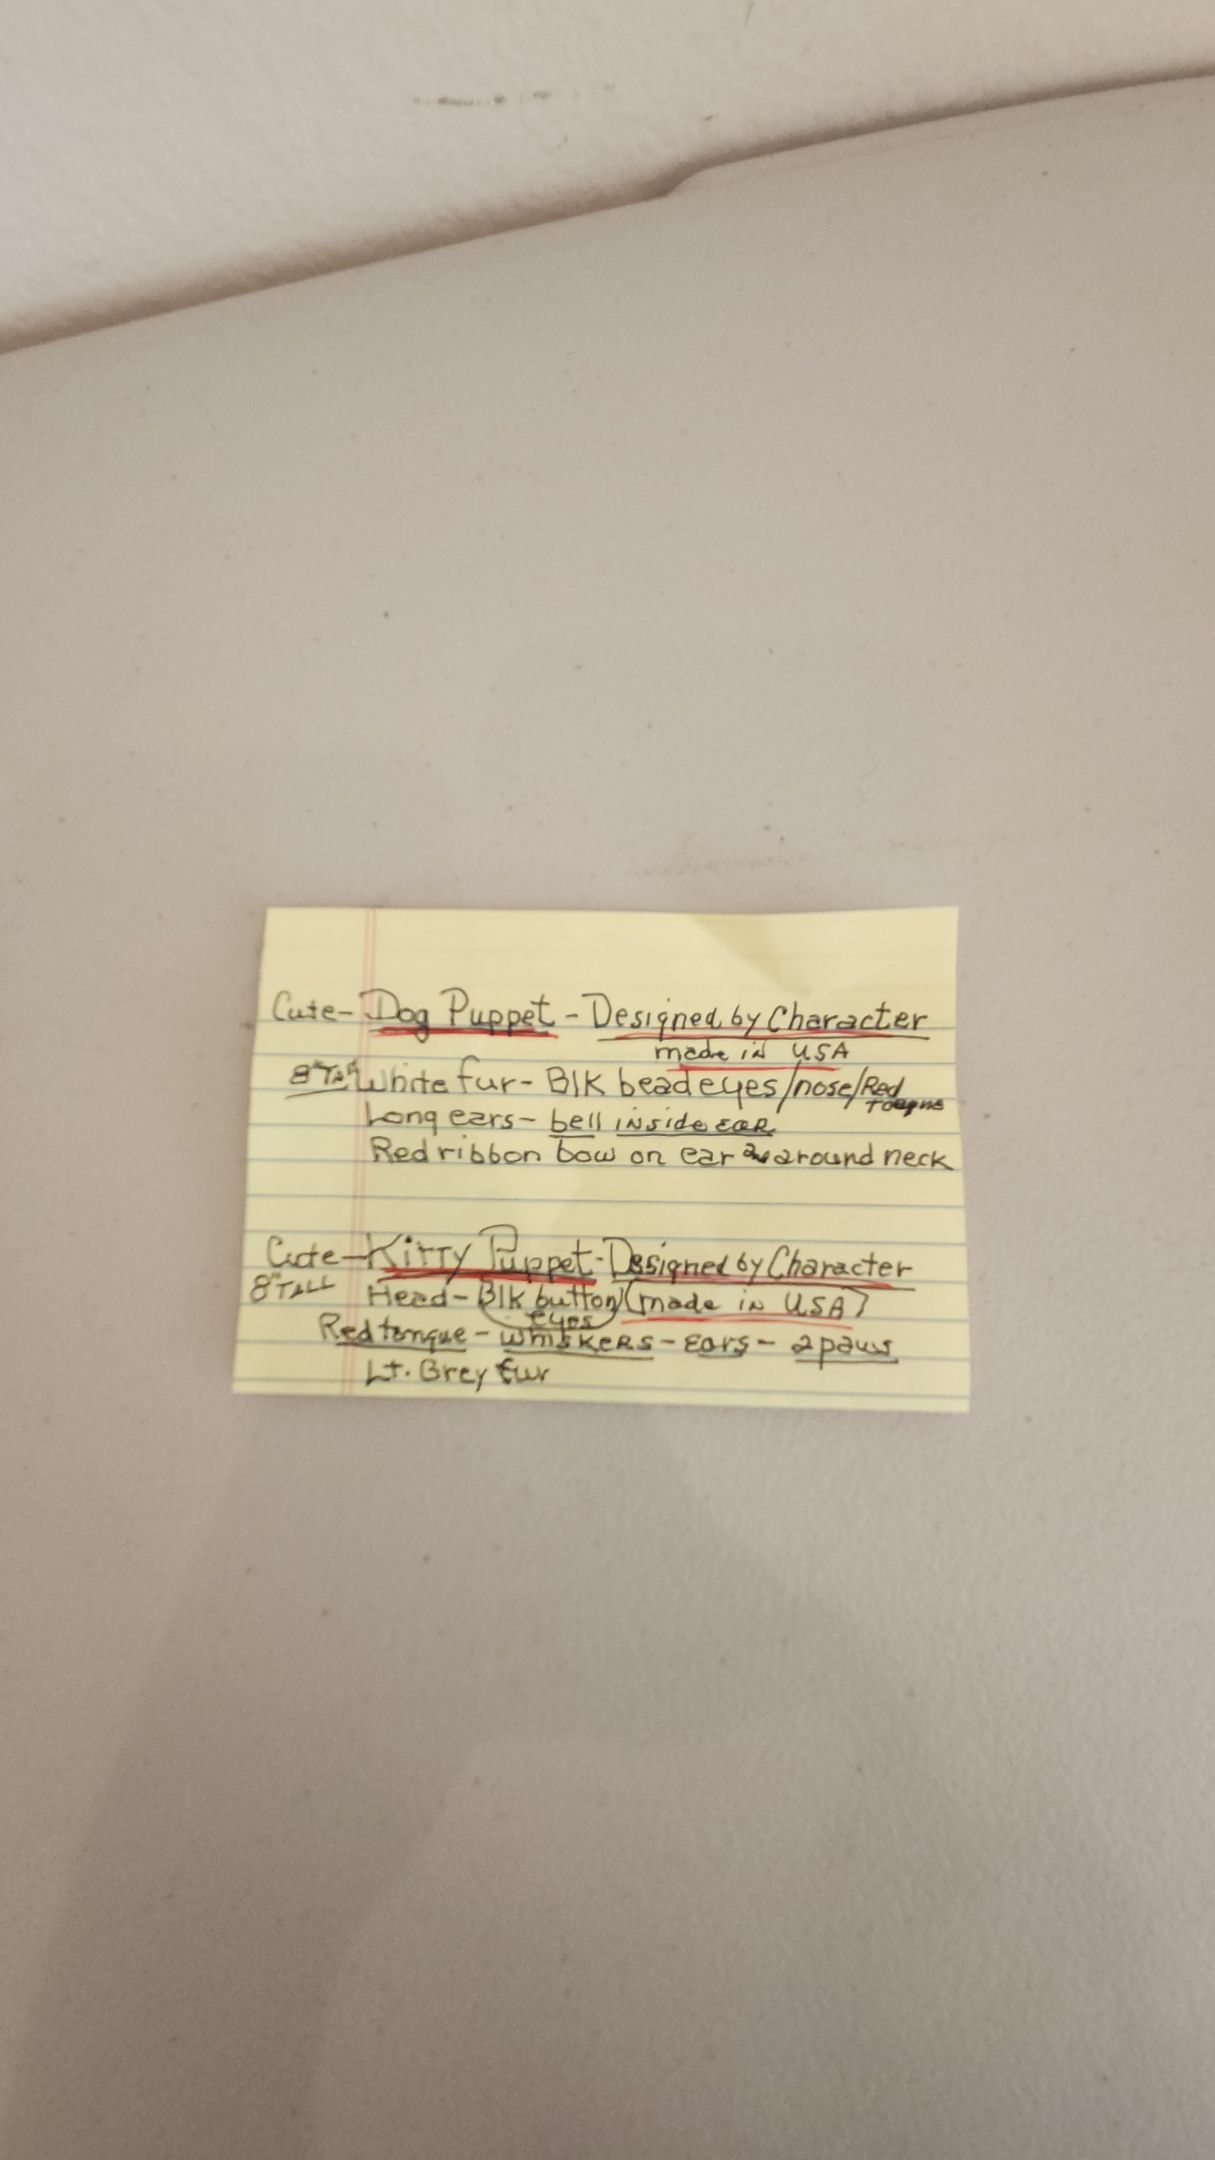 Cute- Dog Puppet - Designed by Character
made in USA
8" Tall White fur- Blk bead eyes/nose/Red
Long ears- bell inside ear
Red ribbon bow on ear around neck
Cute- Kitty Puppet- Designed by Character
8" TALL Head- Blk button (made in USA)
eyes
Red tongue - whiskers - Ears - 2 paws
Lt. Grey fur